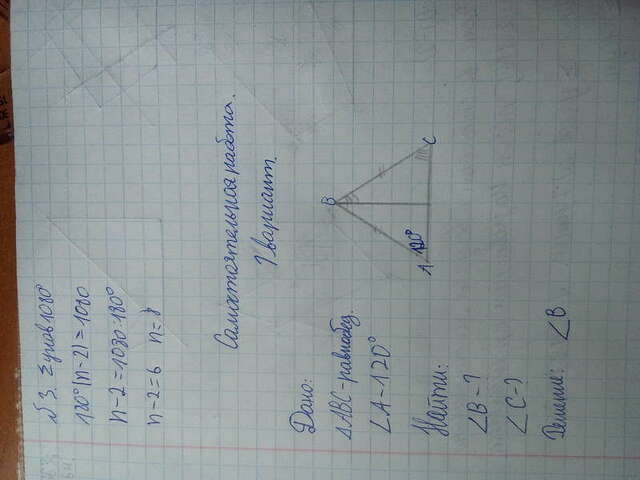 №3. Σ углов 1080°
180°(n-2)=1080
n-2=1080:180°
n-2=6 n=8
Самостоятельная работа.
1 вариант.
Дано:
△ABC-равнобед.
∠A-120°
Найти:
∠B-?
∠C-?
Решение: ∠B
B
A
120°
C